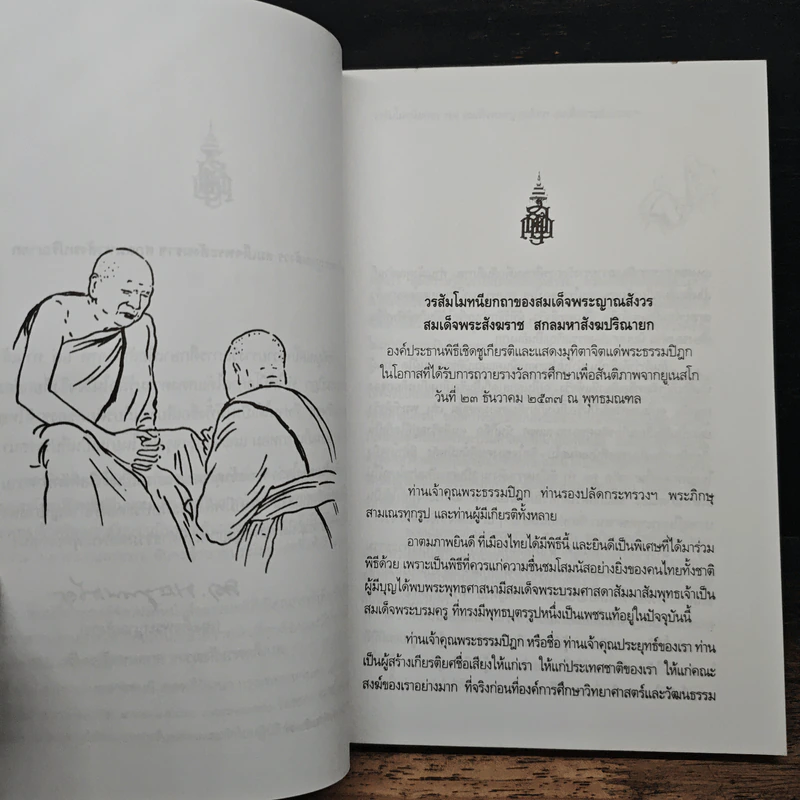 วรสัมโมทนียกถาของสมเด็จพระญาณสังวร
สมเด็จพระสังฆราช สกลมหาสังฆปริณายก
องค์ประธานพิธีเชิดชูเกียรติและแสดงมุทิตาจิตแด่พระธรรมปิฎก
ในโอกาสที่ได้รับการถวายรางวัลการศึกษาเพื่อสันติภาพจากยูเนสโก
วันที่ ๒๓ ธันวาคม ๒๕๓๗ ณ พุทธมณฑล
ท่านเจ้าคุณพระธรรมปิฎก ท่านรองปลัดกระทรวงฯ พระภิกษุ
สามเณรทุกรูป และท่านผู้มีเกียรติทั้งหลาย
อาตมภาพยินดี ที่เมืองไทยได้มีพิธีนี้ และยินดีเป็นพิเศษที่ได้มาร่วม
พิธีด้วย เพราะเป็นพิธีที่ควรแก่ความชื่นชมโสมนัสอย่างยิ่งของคนไทยทั้งชาติ
ผู้มีบุญได้พบพระพุทธศาสนามีสมเด็จพระบรมศาสดาสัมมาสัมพุทธเจ้าเป็น
สมเด็จพระบรมครู ที่ทรงมีพุทธบุตรรูปหนึ่งเป็นเพชรแท้อยู่ในปัจจุบันนี้
ท่านเจ้าคุณพระธรรมปิฎก หรือชื่อ ท่านเจ้าคุณประยุทธ์ของเรา ท่าน
เป็นผู้สร้างเกียรติยศชื่อเสียงให้แก่เรา ให้แก่ประเทศชาติของเรา ให้แก่คณะ
สงฆ์ของเราอย่างมาก ที่จริงก่อนที่องค์การศึกษาวิทยาศาสตร์และวัฒนธรรม